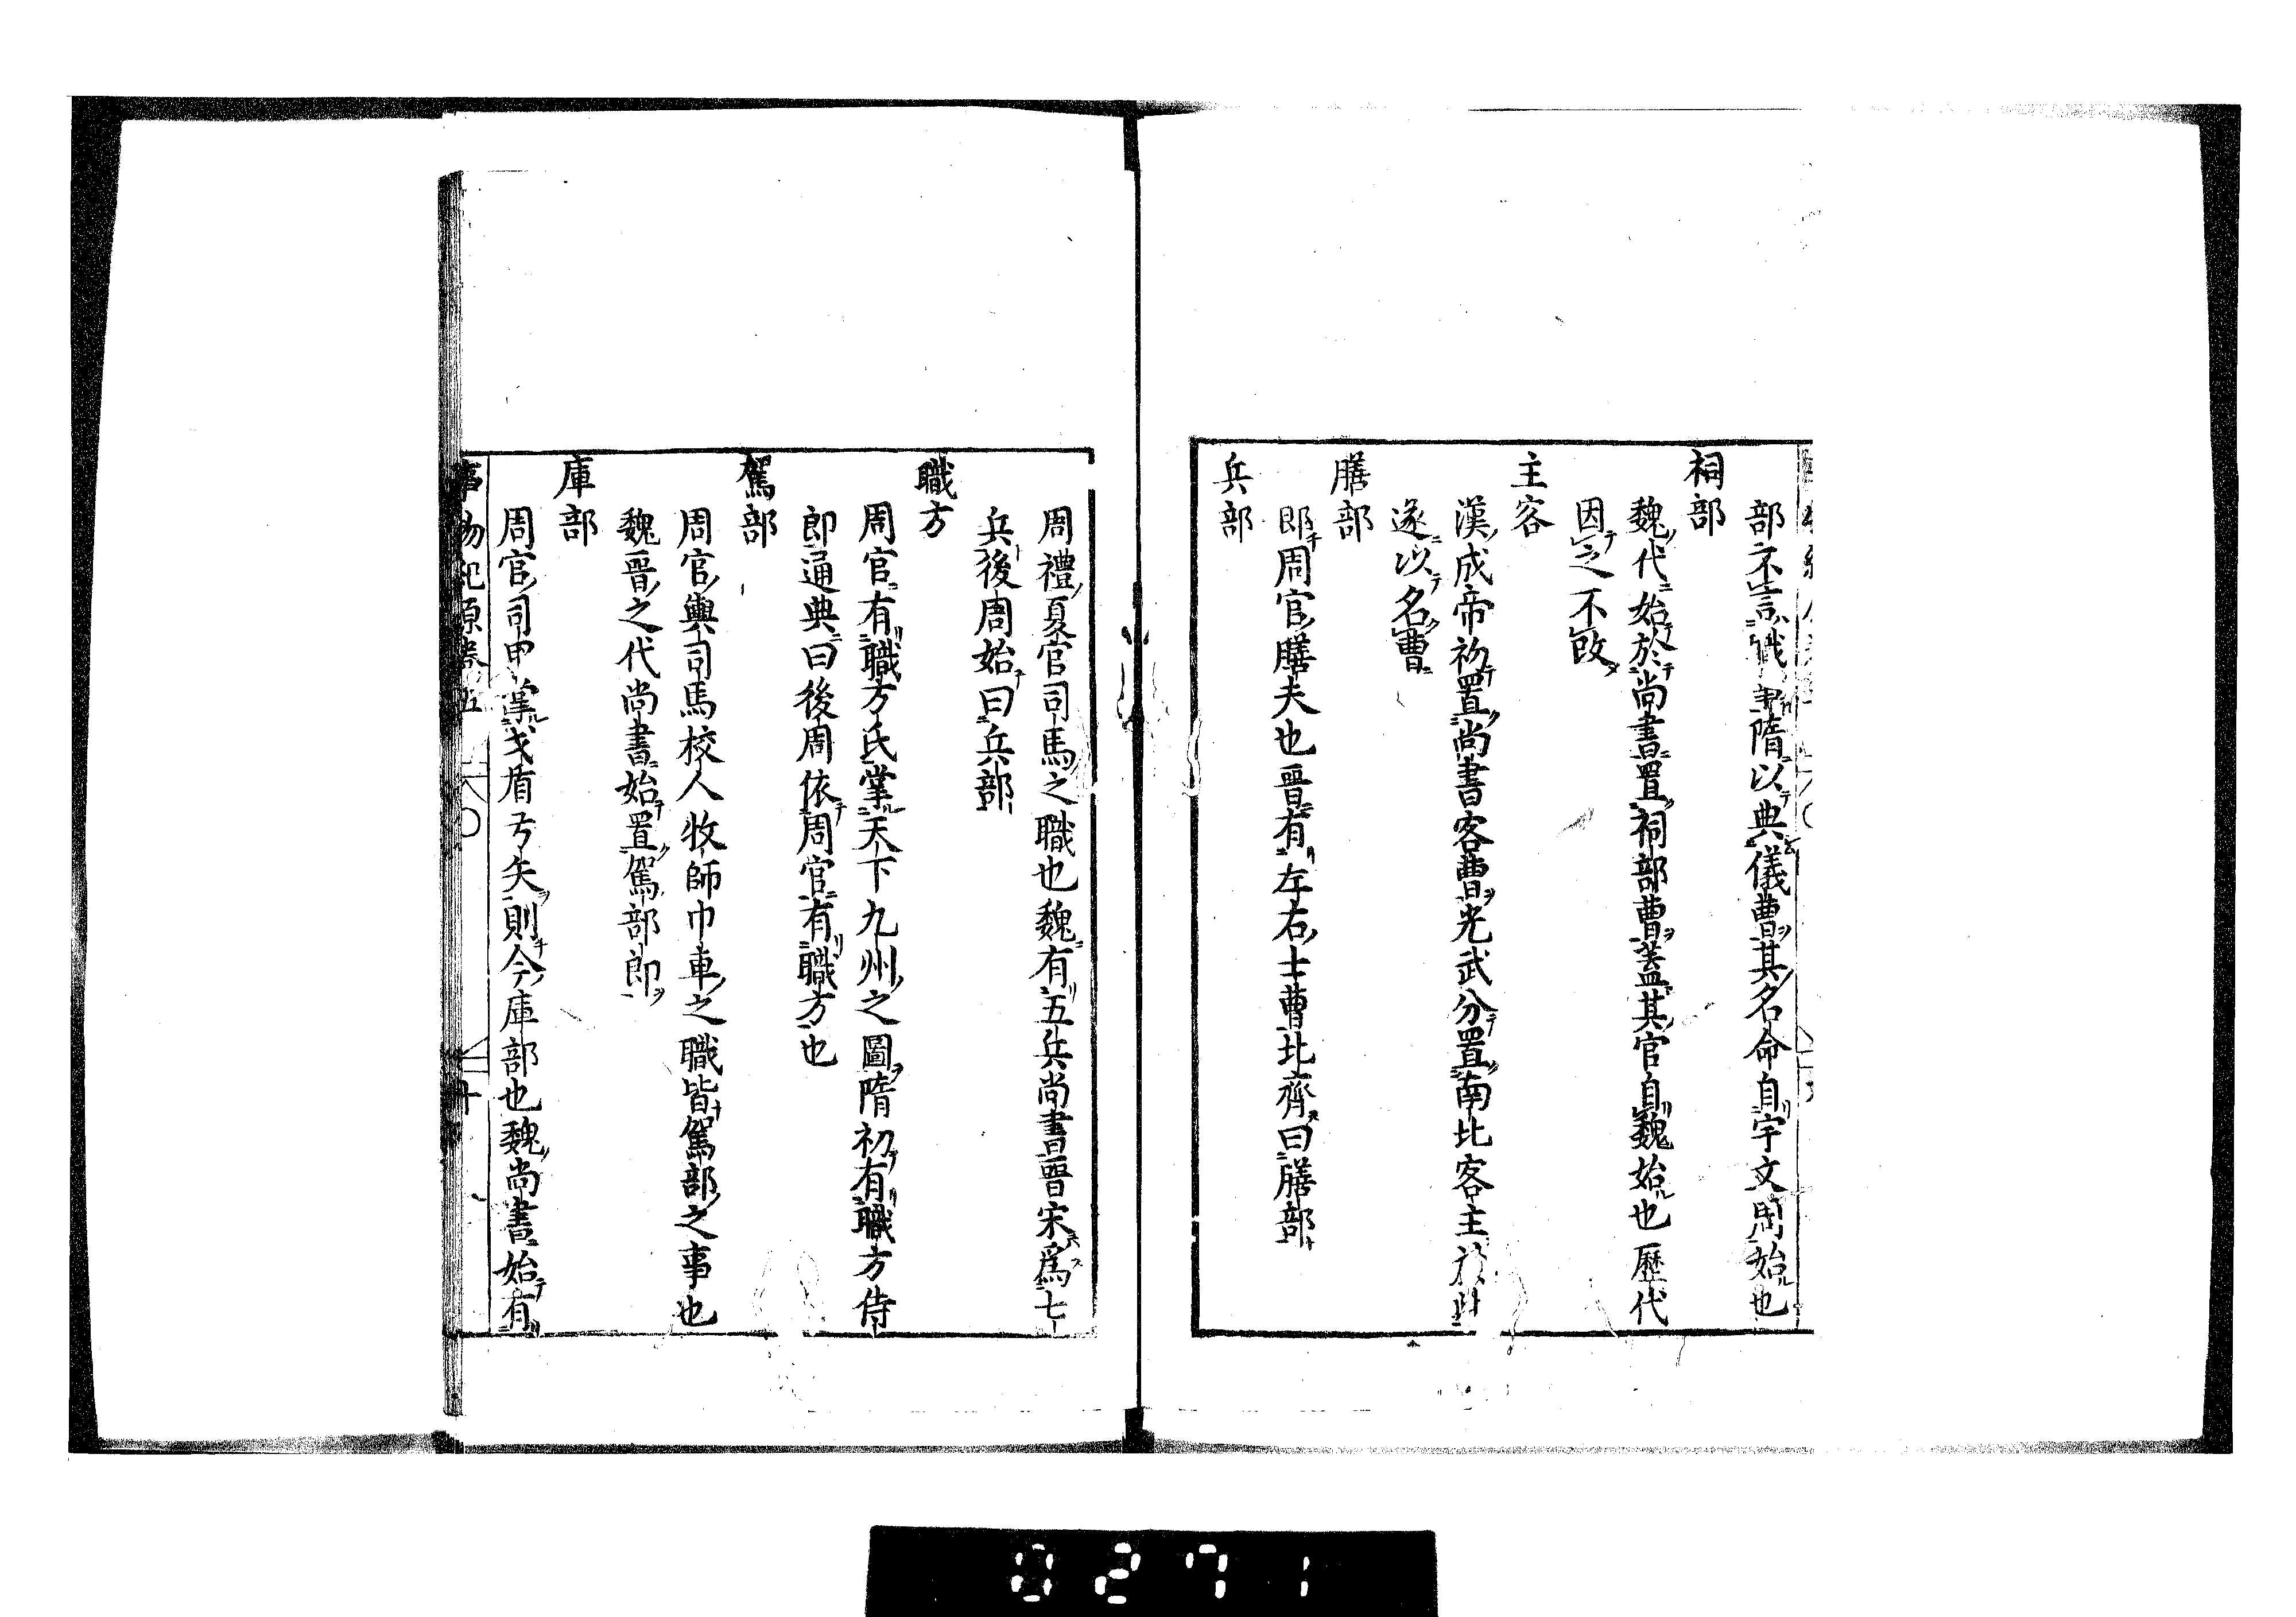 部不言職隋以典儀曹其名命自宇文周始也
祠部
魏代始於尚書置祠部曹蓋其官自魏始也歷代
因之不改
主客
漢成帝初置尚書客曹光武分置南北客主於此
遂以名曹
膳部
即周官膳夫也晉有左右士曹北齊曰膳部
兵部
周禮夏官司馬之職也魏有五兵尚書晉宋為七
兵後周始曰兵部
職方
周官有職方氏掌天下九州之圖隋初有職方侍
郎通典曰後周依周官有職方也
駕部
周官輿司馬校人牧師巾車之職皆駕部之事也
魏晉之代尚書始置駕部郎
庫部
周官司甲掌戈盾弓矢則今庫部也魏尚書始有
事物紀原卷五 十
0271